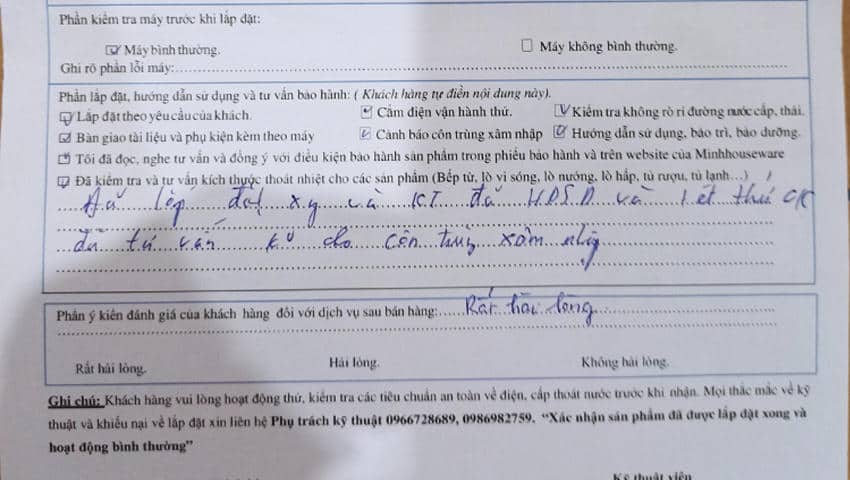 Phần kiểm tra máy trước khi lắp đặt:
☑ Máy bình thường. ☐ Máy không bình thường.
Ghi rõ phần lỗi máy:
Phần lắp đặt, hướng dẫn sử dụng và tư vấn bảo hành: ( Khách hàng tự điền nội dung này).
☑ Lắp đặt theo yêu cầu của khách. ☑ Cắm điện vận hành thử. ☑ Kiểm tra không rò rỉ đường nước cấp, thải.
☑ Bàn giao tài liệu và phụ kiện kèm theo máy ☑ Cảnh báo côn trùng xâm nhập ☑ Hướng dẫn sử dụng, bảo trì, bảo dưỡng.
☑ Tôi đã đọc, nghe tư vấn và đồng ý với điều kiện bảo hành sản phẩm trong phiếu bảo hành và trên website của Minhhouseware
☑ Đã kiểm tra và tư vấn kích thước thoát nhiệt cho các sản phẩm (Bếp từ, lò vi sóng, lò nướng, lò hấp, tủ rượu, tủ lạnh…)
đặt và KT đã HDSD và
đã tư vấn cho côn trùng xâm nhập
Phần ý kiến đánh giá của khách hàng đối với dịch vụ sau bán hàng: Rất hài lòng
Rất hài lòng. Hài lòng. Không hài lòng.
Ghi chú: Khách hàng vui lòng hoạt động thử, kiểm tra các tiêu chuẩn an toàn về điện, cấp thoát nước trước khi nhận. Mọi thắc mắc về kỹ
thuật và khiếu nại về lắp đặt xin liên hệ Phụ trách kỹ thuật 0966728689, 0986982759. “Xác nhận sản phẩm đã được lắp đặt xong và
hoạt động bình thường”
Kỹ thuật viên